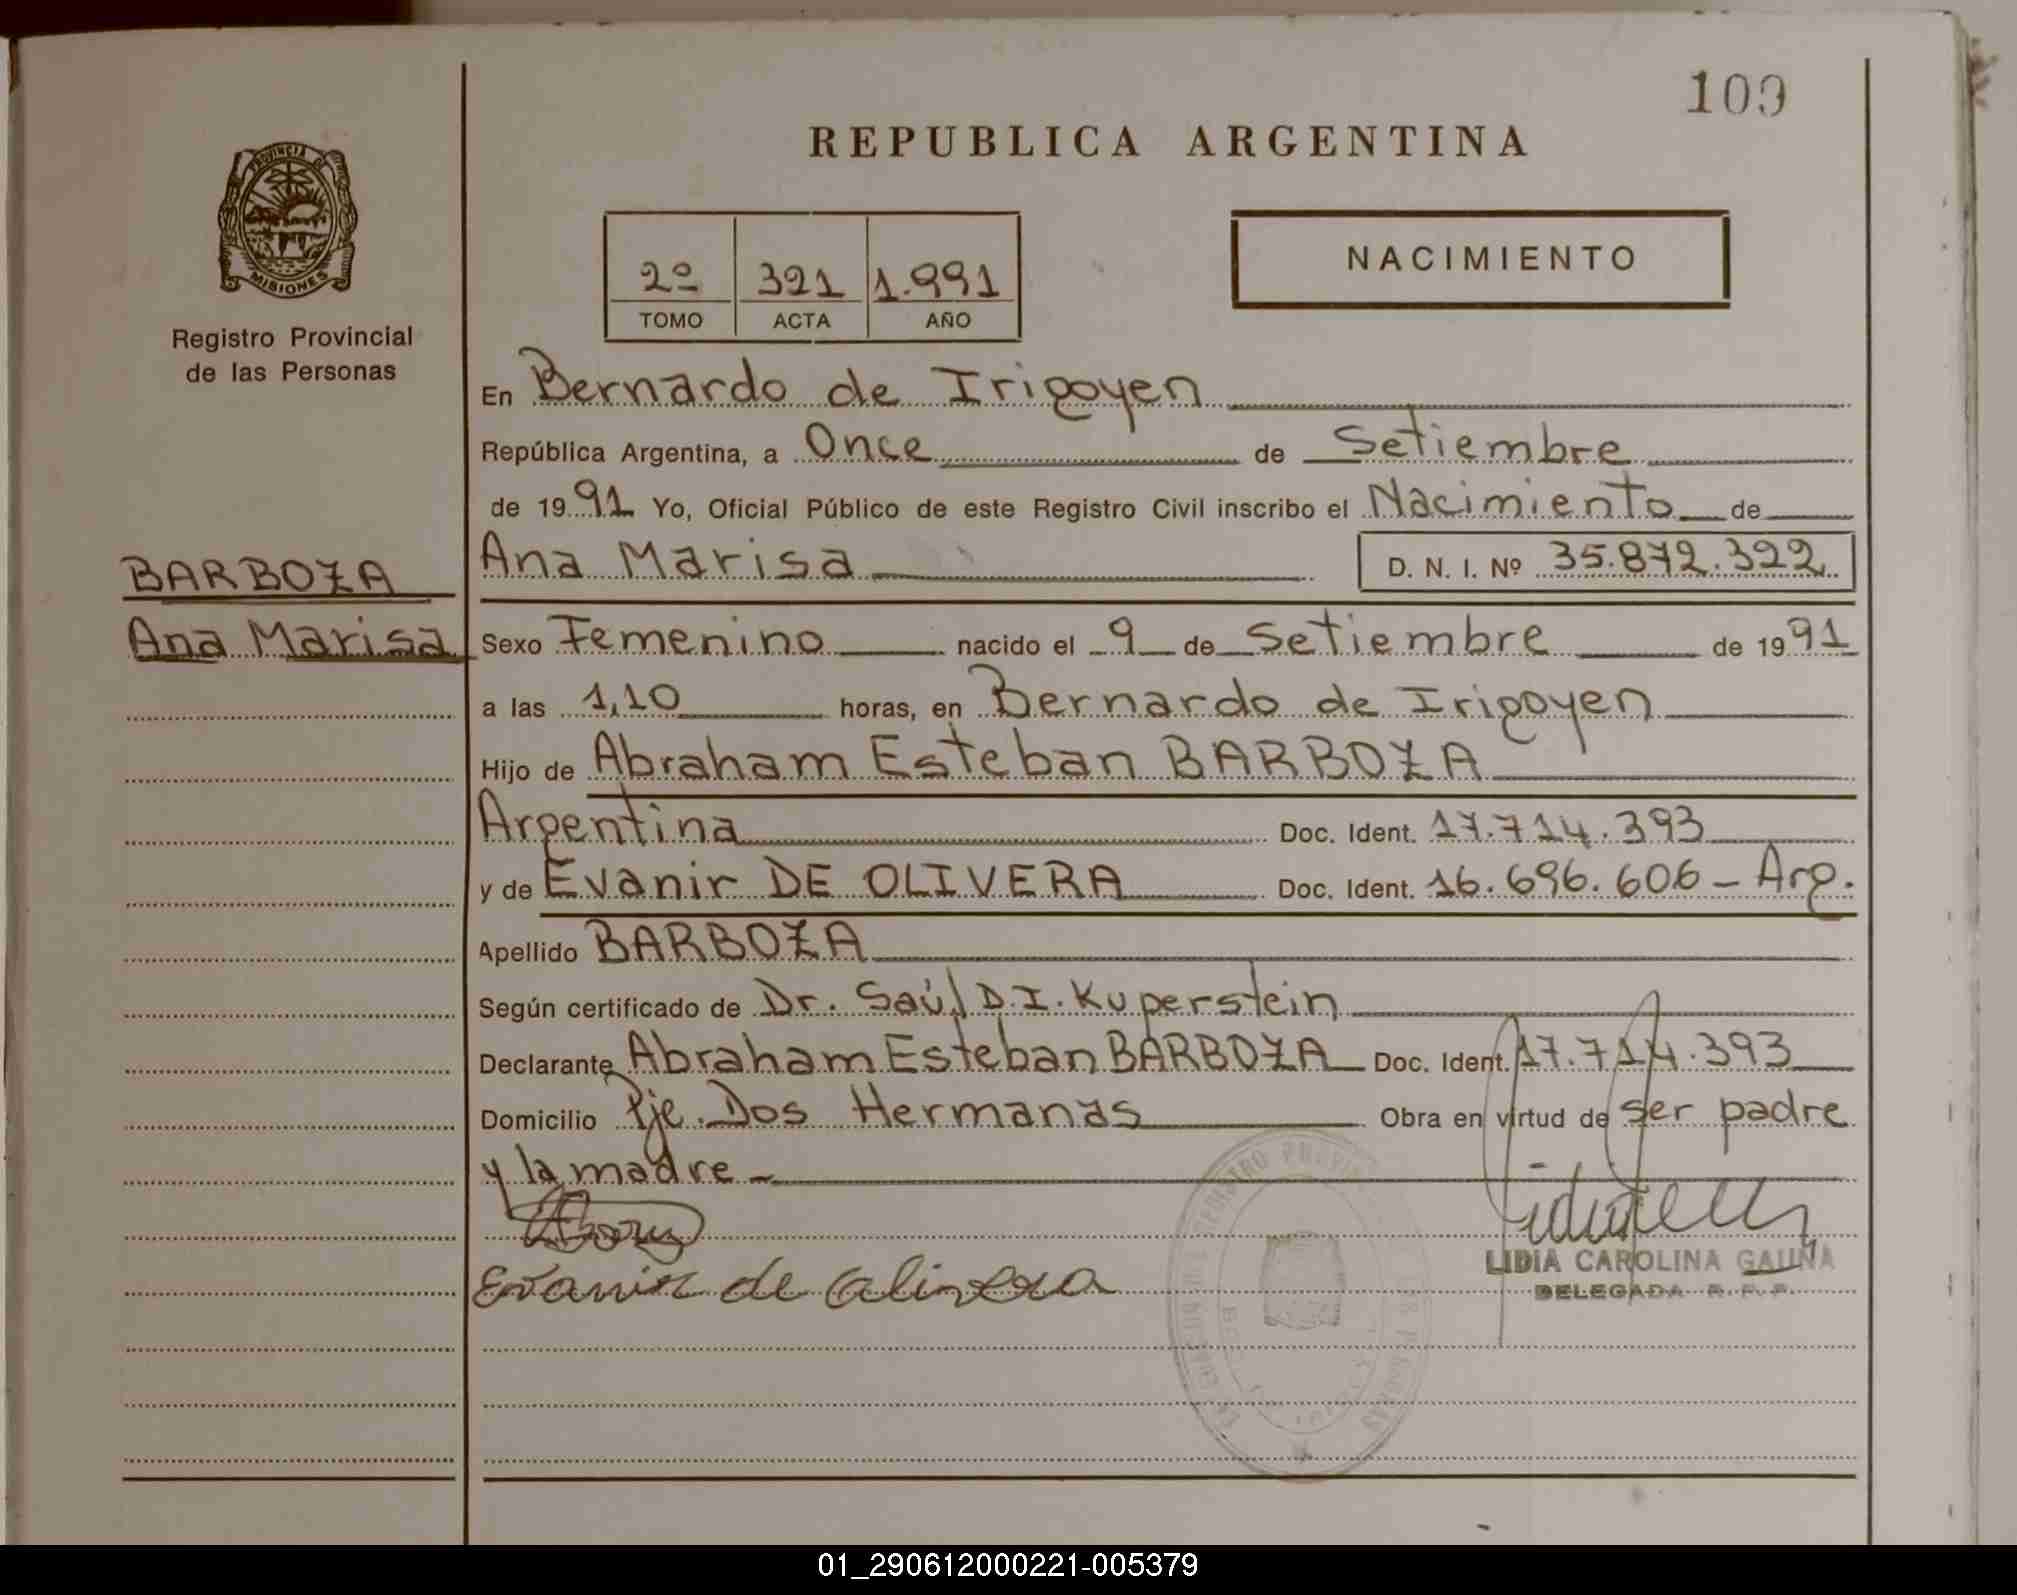 109
REPUBLICA ARGENTINA
PROVINCIA DE
MISIONES
Registro Provincial
de las Personas
2º 321 1.991
TOMO ACTA AÑO
NACIMIENTO
En Bernardo de Irigoyen
República Argentina, a Once de Setiembre
de 1991 Yo, Oficial Público de este Registro Civil inscribo el Nacimiento de
BARBOZA
Ana Marisa
Ana Marisa D. N. I. Nº 35.872.322
Sexo Femenino nacido el 9 de Setiembre de 1991
a las 1,10 horas, en Bernardo de Irigoyen
Hijo de Abraham Esteban BARBOZA
Argentina Doc. Ident. 17.714.393
y de Evanir DE OLIVERA Doc. Ident. 16.696.606 - Arg.
Apellido BARBOZA
Según certificado de Dr. Saúl D.I. Kuperstein
Declarante Abraham Esteban BARBOZA Doc. Ident. 17.714.393
Domicilio Pje. Dos Hermanas Obra en virtud de ser padre
y la madre -
Evanir de Oliveira
LIDIA CAROLINA GAUNA
DELEGADA R. P. P.
01_290612000221-005379